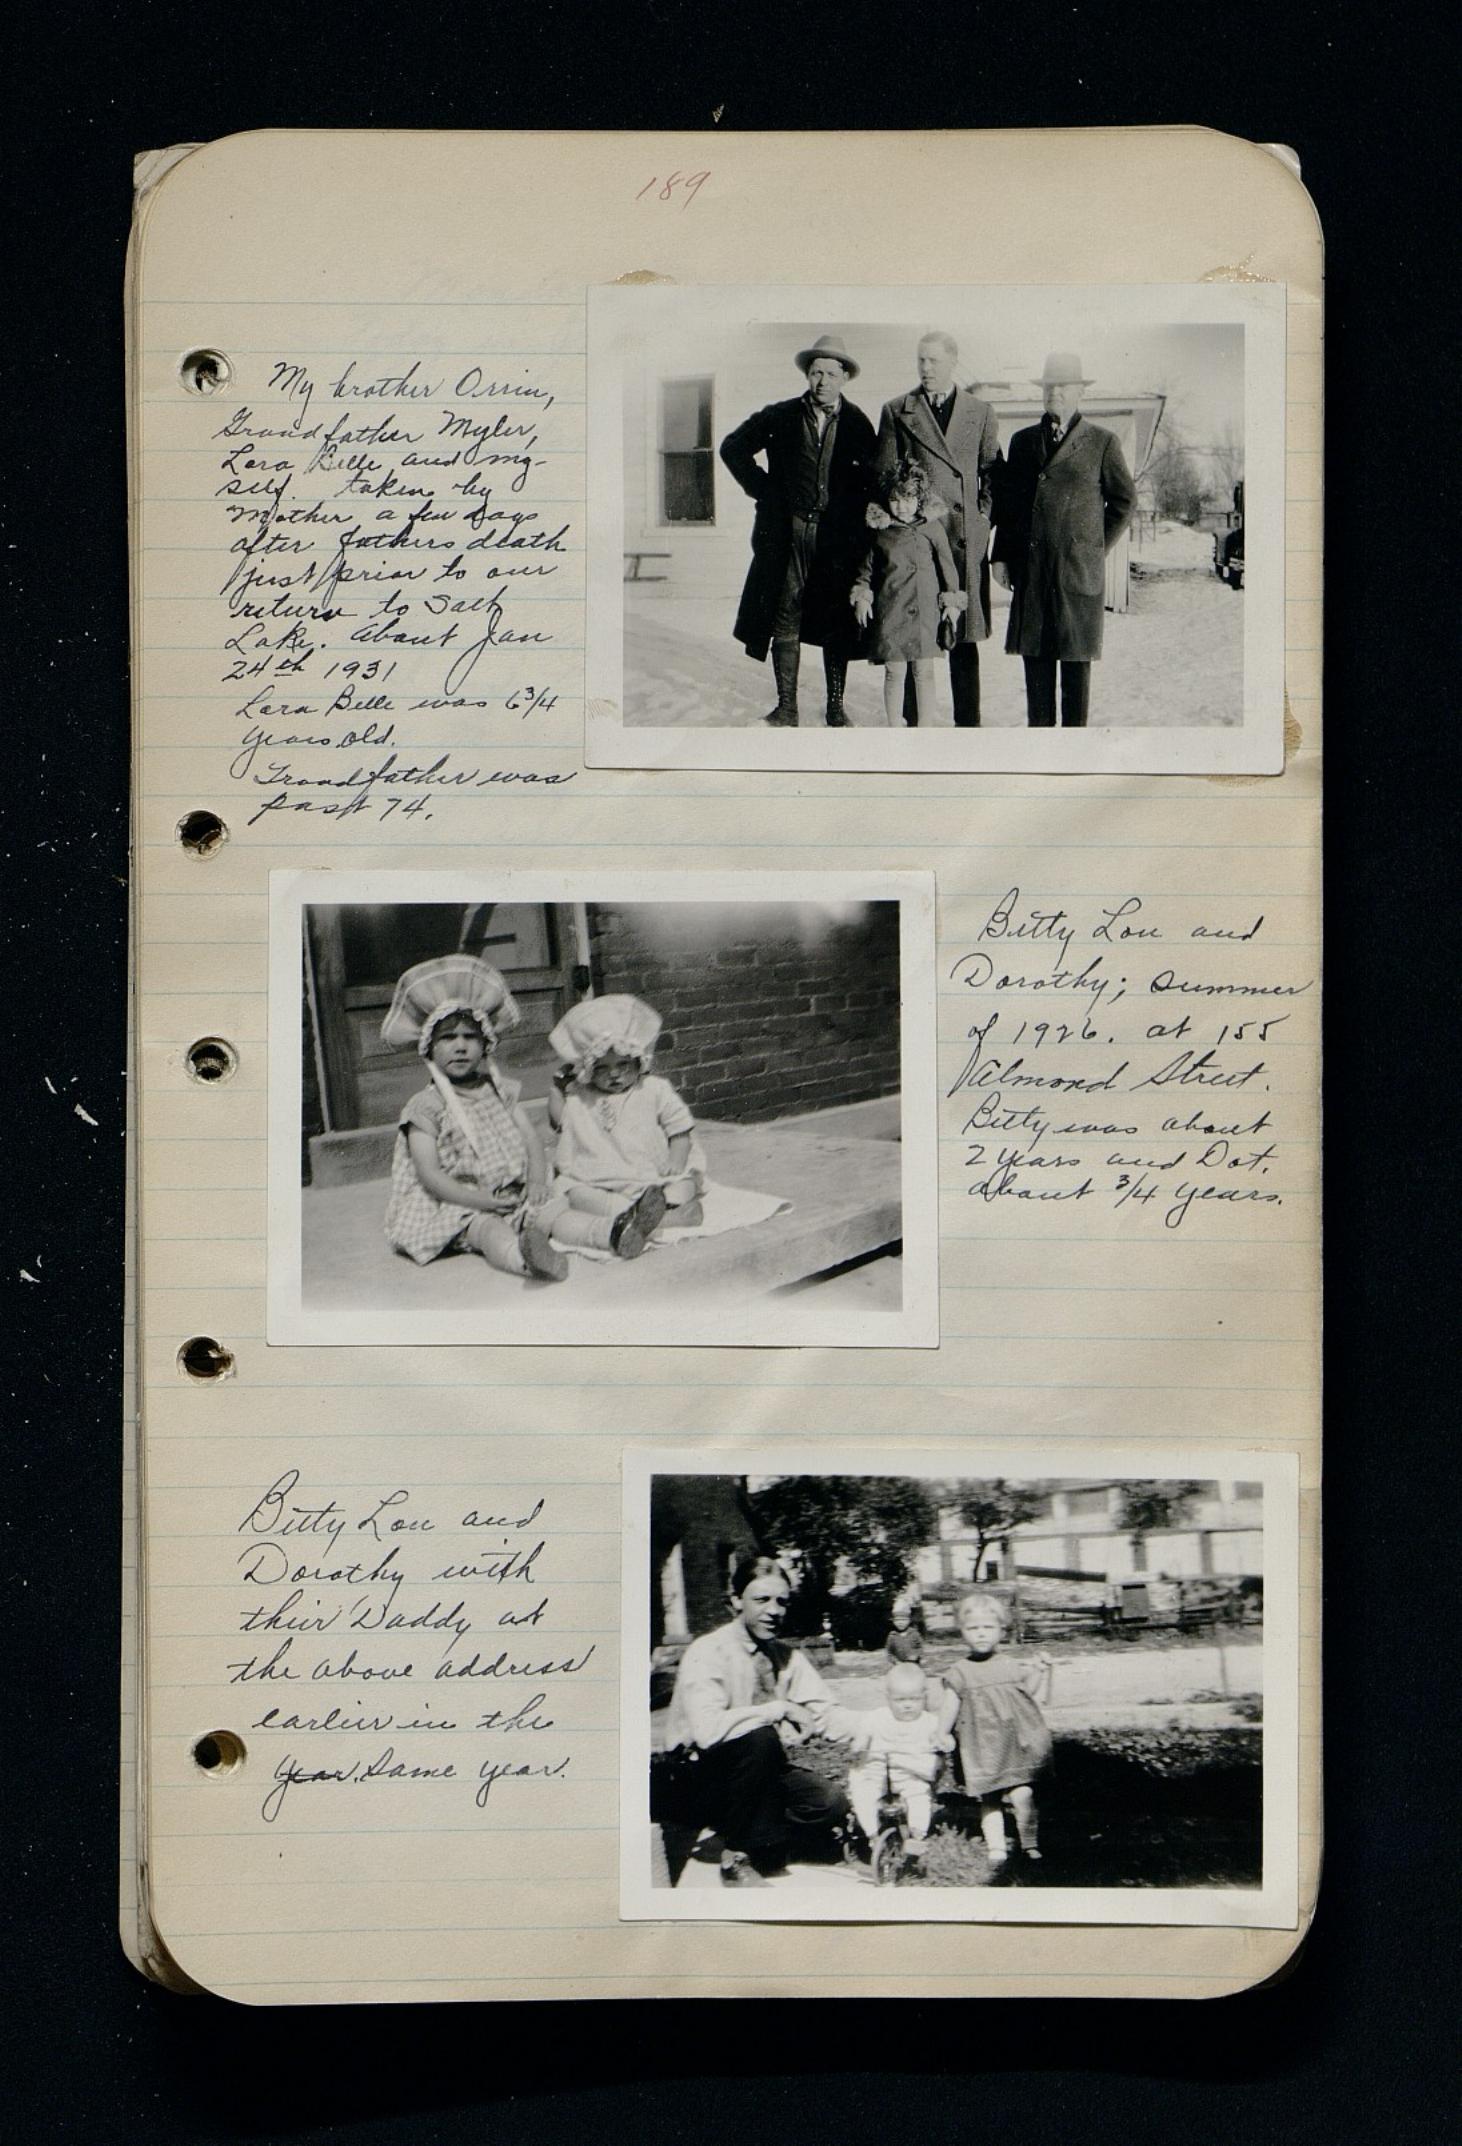 189
My brother Orrin,
Grandfather Myler,
Lara Belle and my-
self. taken by
Mother a few days
after fathers death
just prior to our
return to Salt
Lake. About Jan
24th 1931
Lara Belle was 6 3/4
years old.
Grandfather was
past 74.
Betty Lou and
Dorothy; summer
of 1926. at 155
Almond Street.
Betty was about
2 years and Dot.
about 3/4 years.
Betty Lou and
Dorothy with
their Daddy at
the above address
earlier in the
year. Same year.